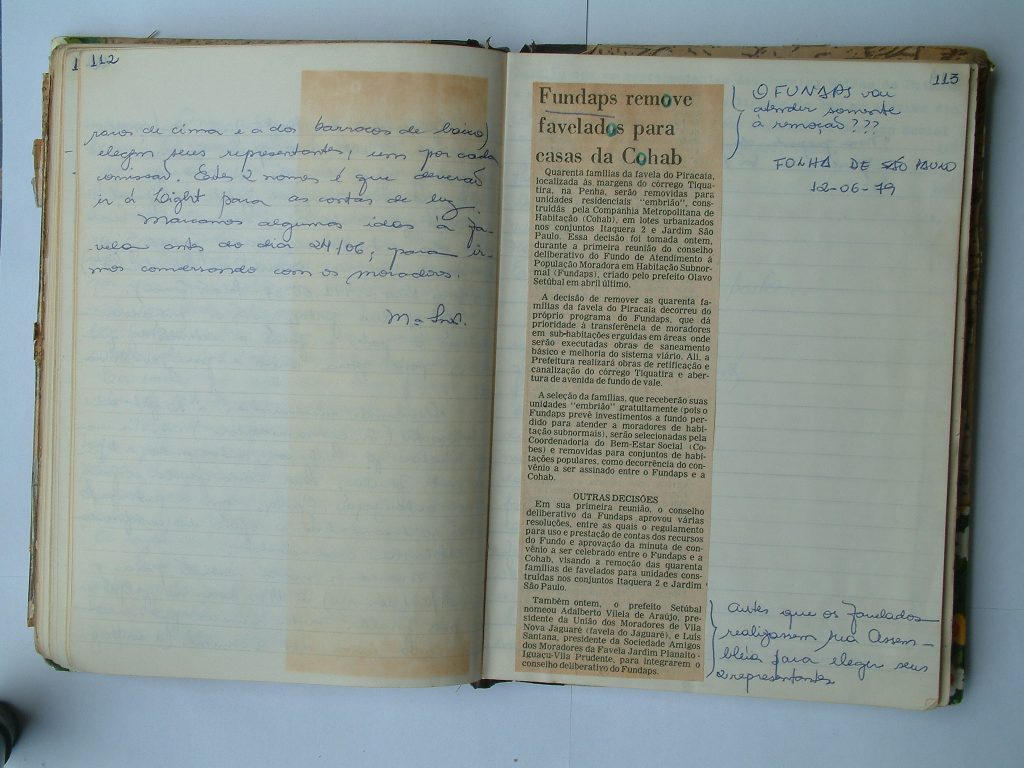 1 112
racos de cima e a dos barracos de baixo)
elegem seus representantes, um por cada
comissão. Estes 2 nomes é que deverão
ir à Light para as contas de luz.
Marcamos algumas idas à fa-
vela antes do dia 24/06, para ir-
mos conversando com os moradores.
113
Fundaps remove
favelados para
casas da Cohab
Quarenta famílias da favela do Piracaia,
localizada às margens do córrego Tiqua-
tira, na Penha, serão removidas para
unidades residenciais "embrião", cons-
truídas pela Companhia Metropolitana de
Habitação (Cohab), em lotes urbanizados
nos conjuntos Itaquera 2 e Jardim São
Paulo. Essa decisão foi tomada ontem,
durante a primeira reunião do conselho
deliberativo do Fundo de Atendimento à
População Moradora em Habitação Subnor-
mal (Fundaps), criado pelo prefeito Olavo
Setúbal em abril último.
A decisão de remover as quarenta fa-
mílias da favela do Piracaia decorreu do
próprio programa do Fundaps, que dá
prioridade à transferência de moradores
em sub-habitações erguidas em áreas onde
serão executadas obras de saneamento
básico e melhoria do sistema viário. Ali, a
Prefeitura realizará obras de retificação e
canalização do córrego Tiquatira e aber-
tura de avenida de fundo de vale.
A seleção da famílias, que receberão suas
unidades "embrião" gratuitamente (pois o
Fundaps prevê investimentos a fundo per-
dido para atender a moradores de habi-
tação subnormais), serão selecionadas pela
Coordenadoria do Bem-Estar Social (Co-
bes) e removidas para conjuntos de habi-
tações populares, como decorrência do con-
vênio a ser assinado entre o Fundaps e a
Cohab.
OUTRAS DECISÕES
Em sua primeira reunião, o conselho
deliberativo da Fundaps aprovou várias
resoluções, entre as quais o regulamento
para uso e prestação de contas dos recursos
do Fundo e aprovação da minuta de con-
vênio a ser celebrado entre o Fundaps e a
Cohab, visando a remoção das quarenta
famílias de favelados para unidades cons-
truídas nos conjuntos Itaquera 2 e Jardim
São Paulo.
Também ontem, o prefeito Setúbal
nomeou Adalberto Vilela de Araújo, pre-
sidente da União dos Moradores de Vila
Nova Jaguaré (favela do Jaguaré), e Luís
Santana, presidente da Sociedade Amigos
dos Moradores da Favela Jardim Planalto-
Iguaçu-Vila Prudente, para integrarem o
conselho deliberativo do Fundaps.
O FUNAPS vai
atender somente
à remoção???
FOLHA DE SÃO PAULO
12-06-79
Antes que os favelados
realizassem sua Assem-
bléia para eleger seus
2 representantes